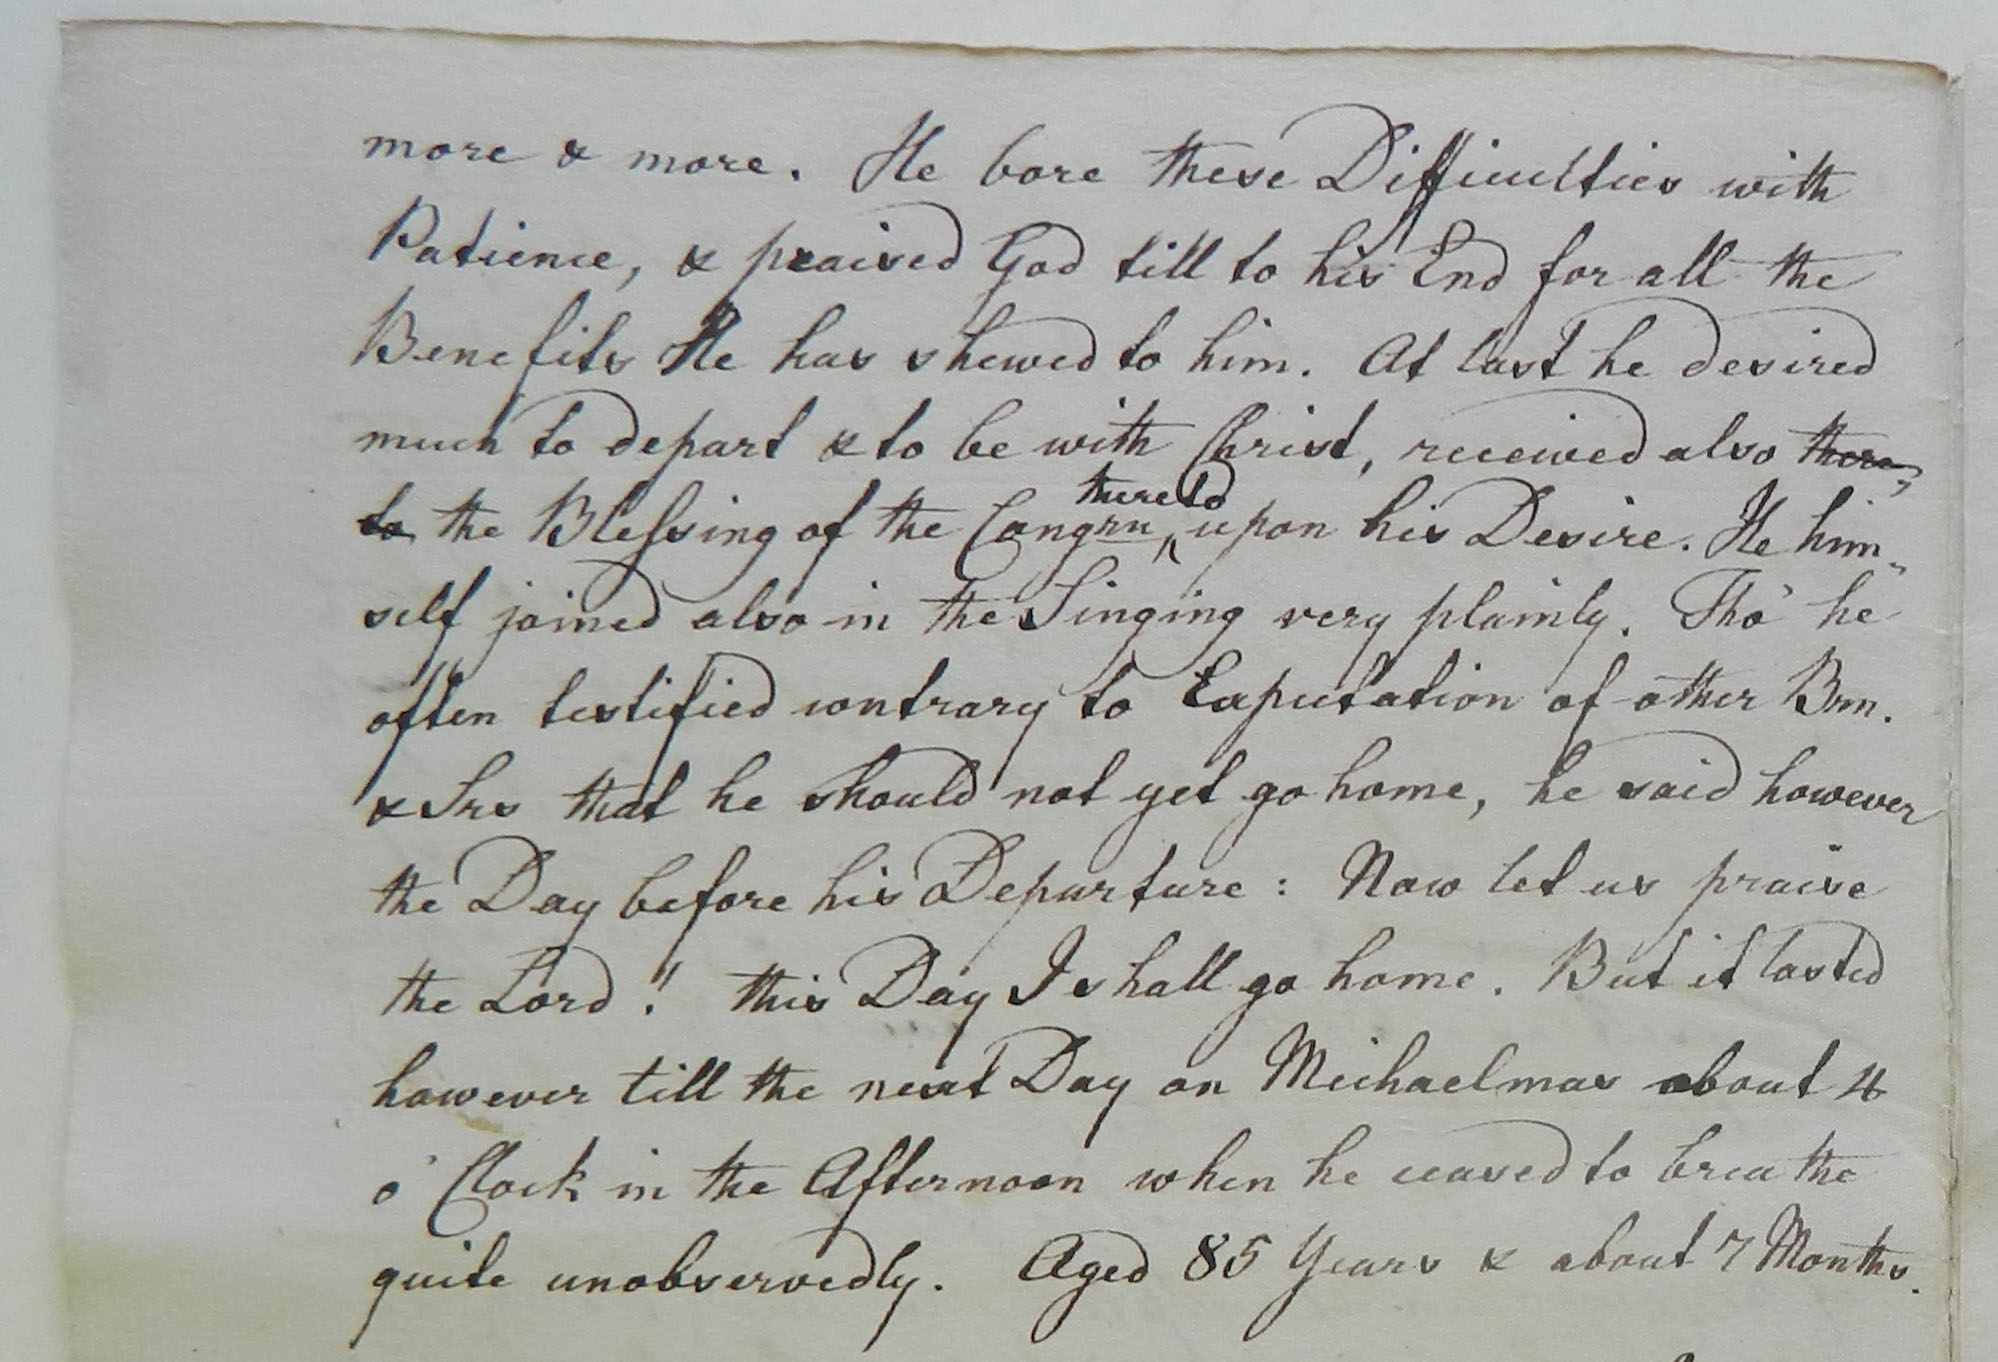 more & more. He bore these Difficulties with
Patience, & praised God till to his End for all the
Benefits He has shewed to him. At last he desired
much to depart & to be with Christ, received also there-
to the Blessing of the Congrn, thereto upon his Desire. He him-
self joined also in the Singing very plainly. Tho' he
often testified contrary to Expectation of other Brn.
& Srs that he should not yet go home, he said however
the Day before his Departure: Now let us praise
the Lord! this Day I shall go home. But it lasted
however till the next Day on Michaelmas about 4
o' Clock in the Afternoon when he ceased to breathe
quite unobservedly. Aged 85 Years & about 7 Months.